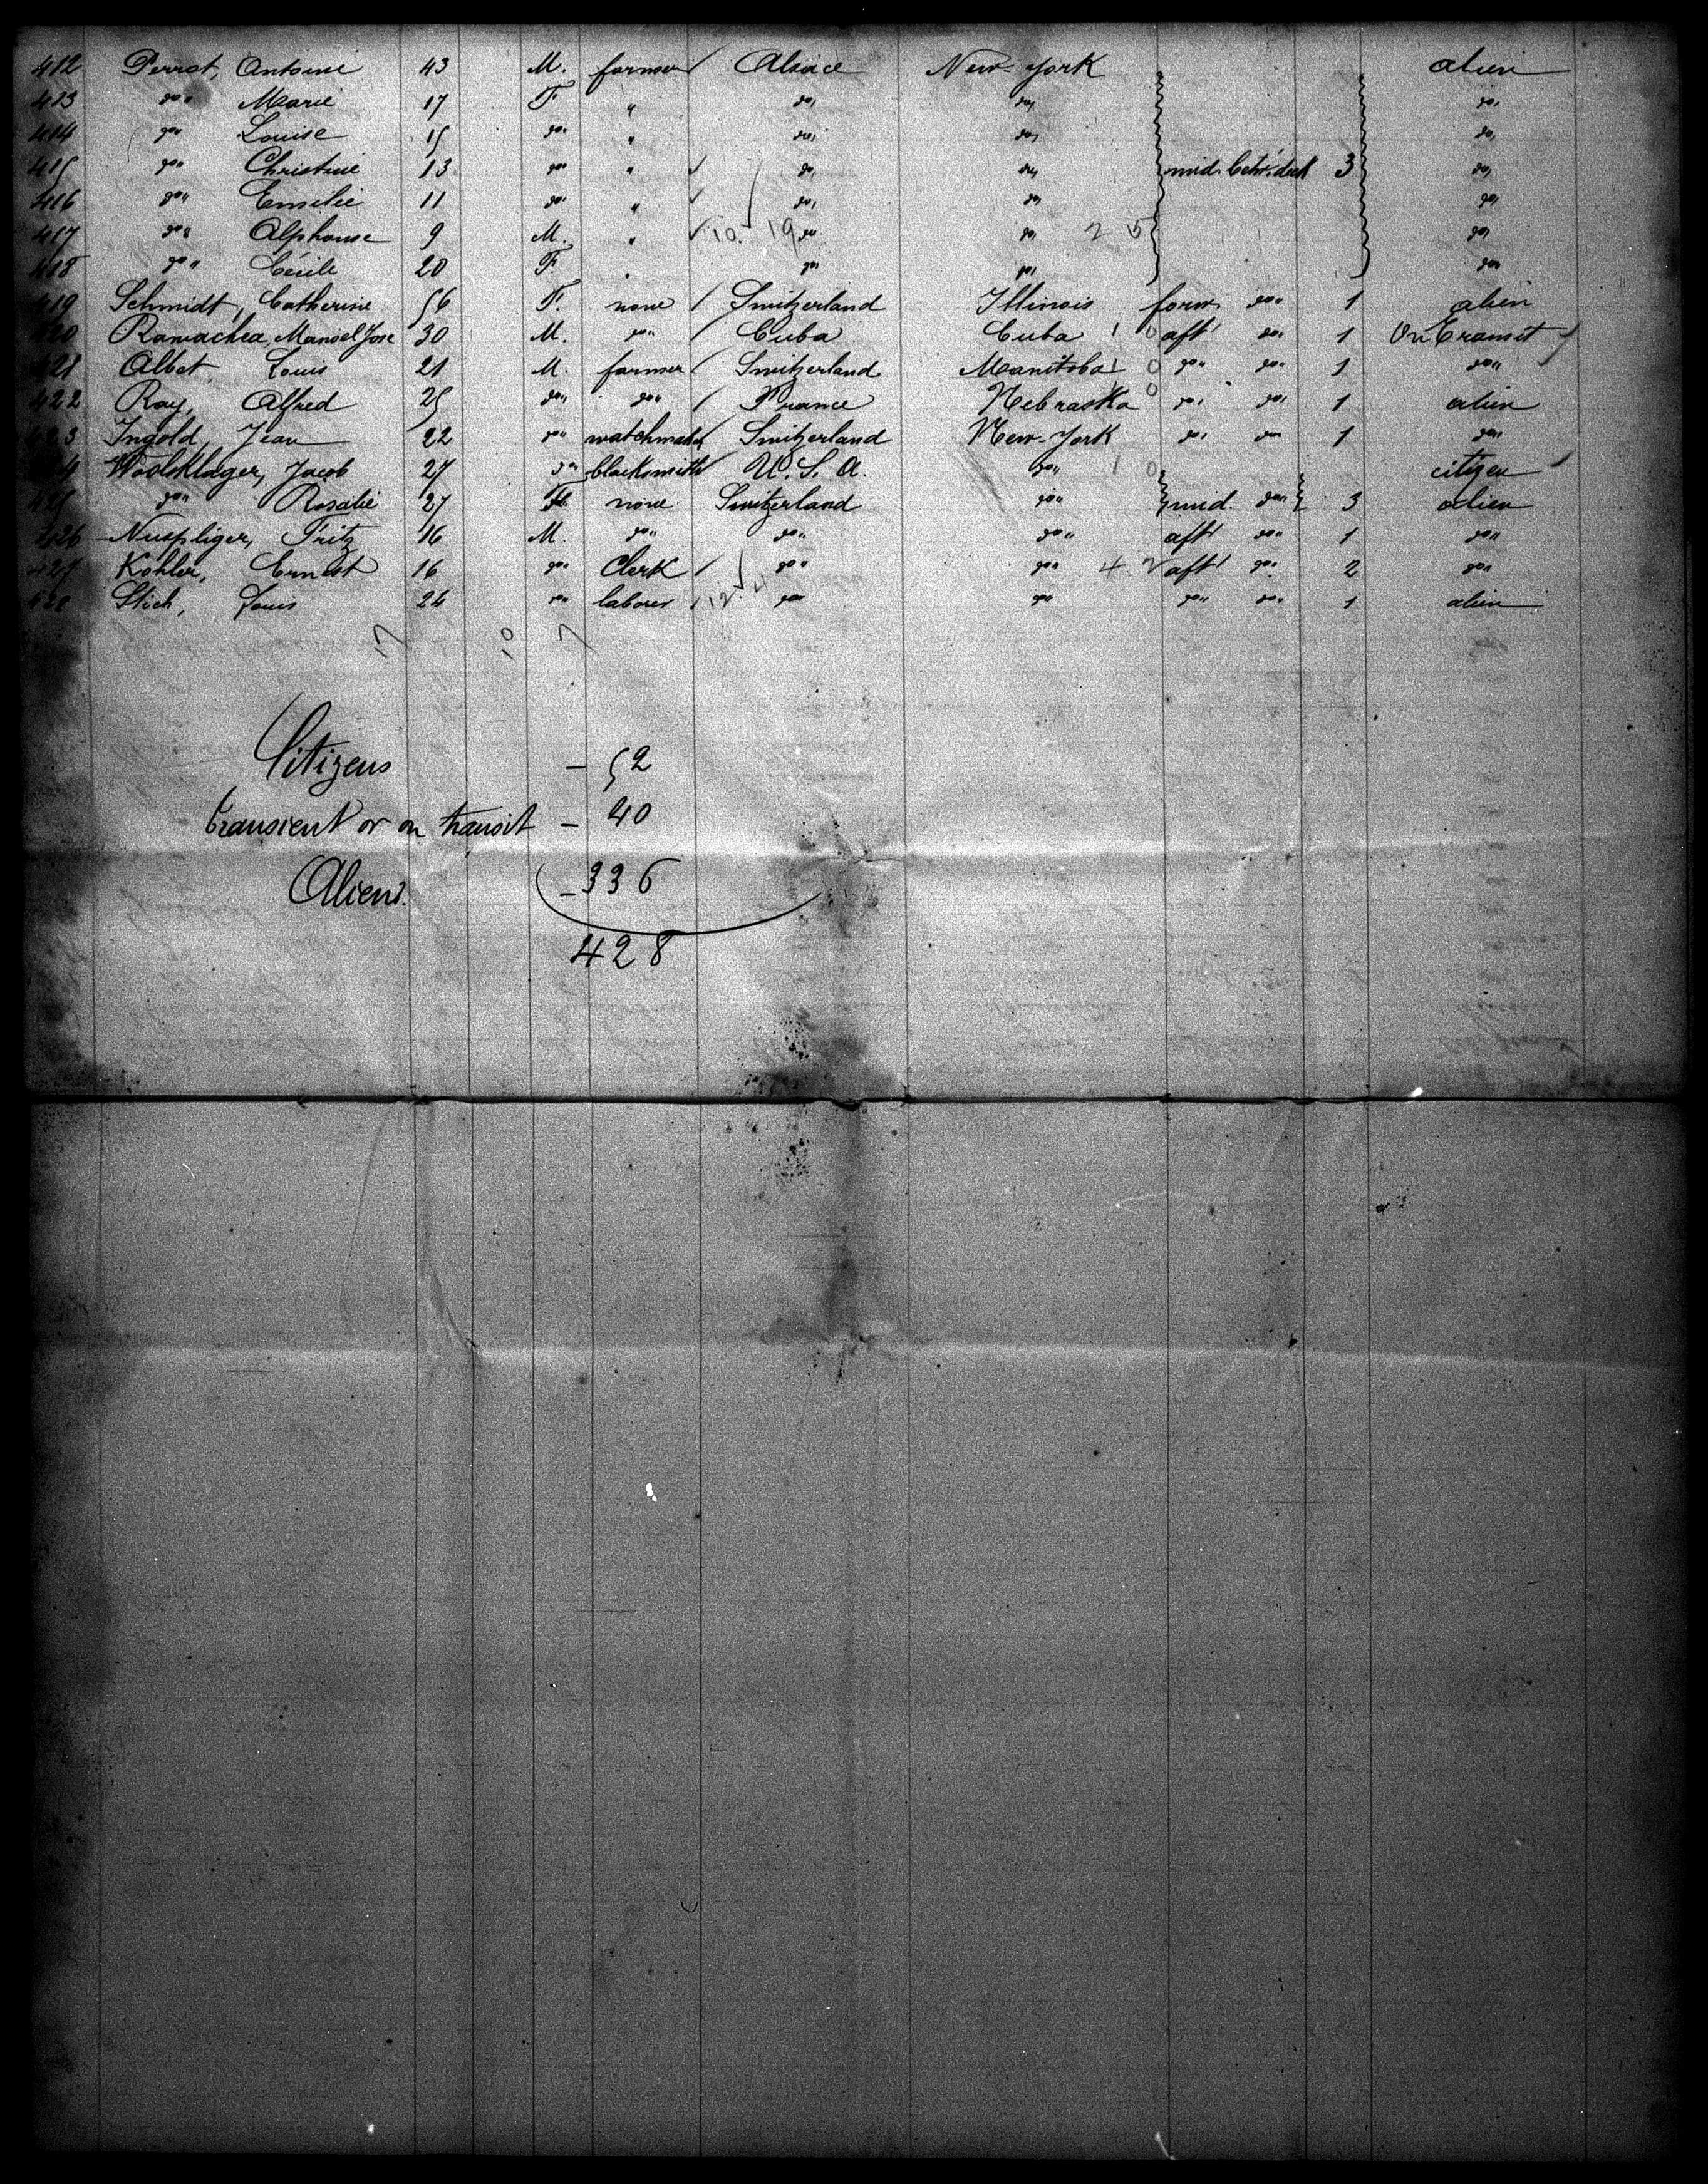 412 Perrot, Antoine 43 M. farmer / Alsace New-York alien
413 do" Marie 17 F. " do, do, do,
414 do" Louise 15 do" " do, do, do,
415 do" Christine 13 do" " do, do, mid. betw. deck 3 do,
416 do" Emilie 11 do" " do, do, do,
417 do" Alphonse 9 M. " 10. 19 do do, 2 5 do,
418 do" Cécile 20 F. " do, do, do,
419 Schmidt, Catherine 56 F. none / Switzerland Illinois forw. do" 1 alien
420 Ramachea, Manoel Jose 30 M. do" / Cuba Cuba 1 0 aft do" 1 On Transit
421 Albet Louis 21 M. farmer / Switzerland Manitoba 1 0 do" do" 1 do"
422 Ray, Alfred 25 do" do" / France Nebraska 0 do, do, 1 alien
423 Ingold, Jean 22 do" watchmaker / Switzerland New-York do, do" 1 do"
424 Jacob 27 do" blacksmith / U. S. A. do" 1 0 citizen
425 do" Rosalie 27 F. none Switzerland do" mid. do" 3 alien
426 Nuspliger, Fritz 16 M. do" do" do" aft do" 1 do"
427 Kohler, Ernest 16 do" Clerk / do" do" 4 2 aft do" 2 do"
428 Stich, Louis 24 do" laborer / 12 4 do" do" do" do" 1 alien
17 10 7
Citizens - 52
transient or on transit - 40
Aliens. - 336
428